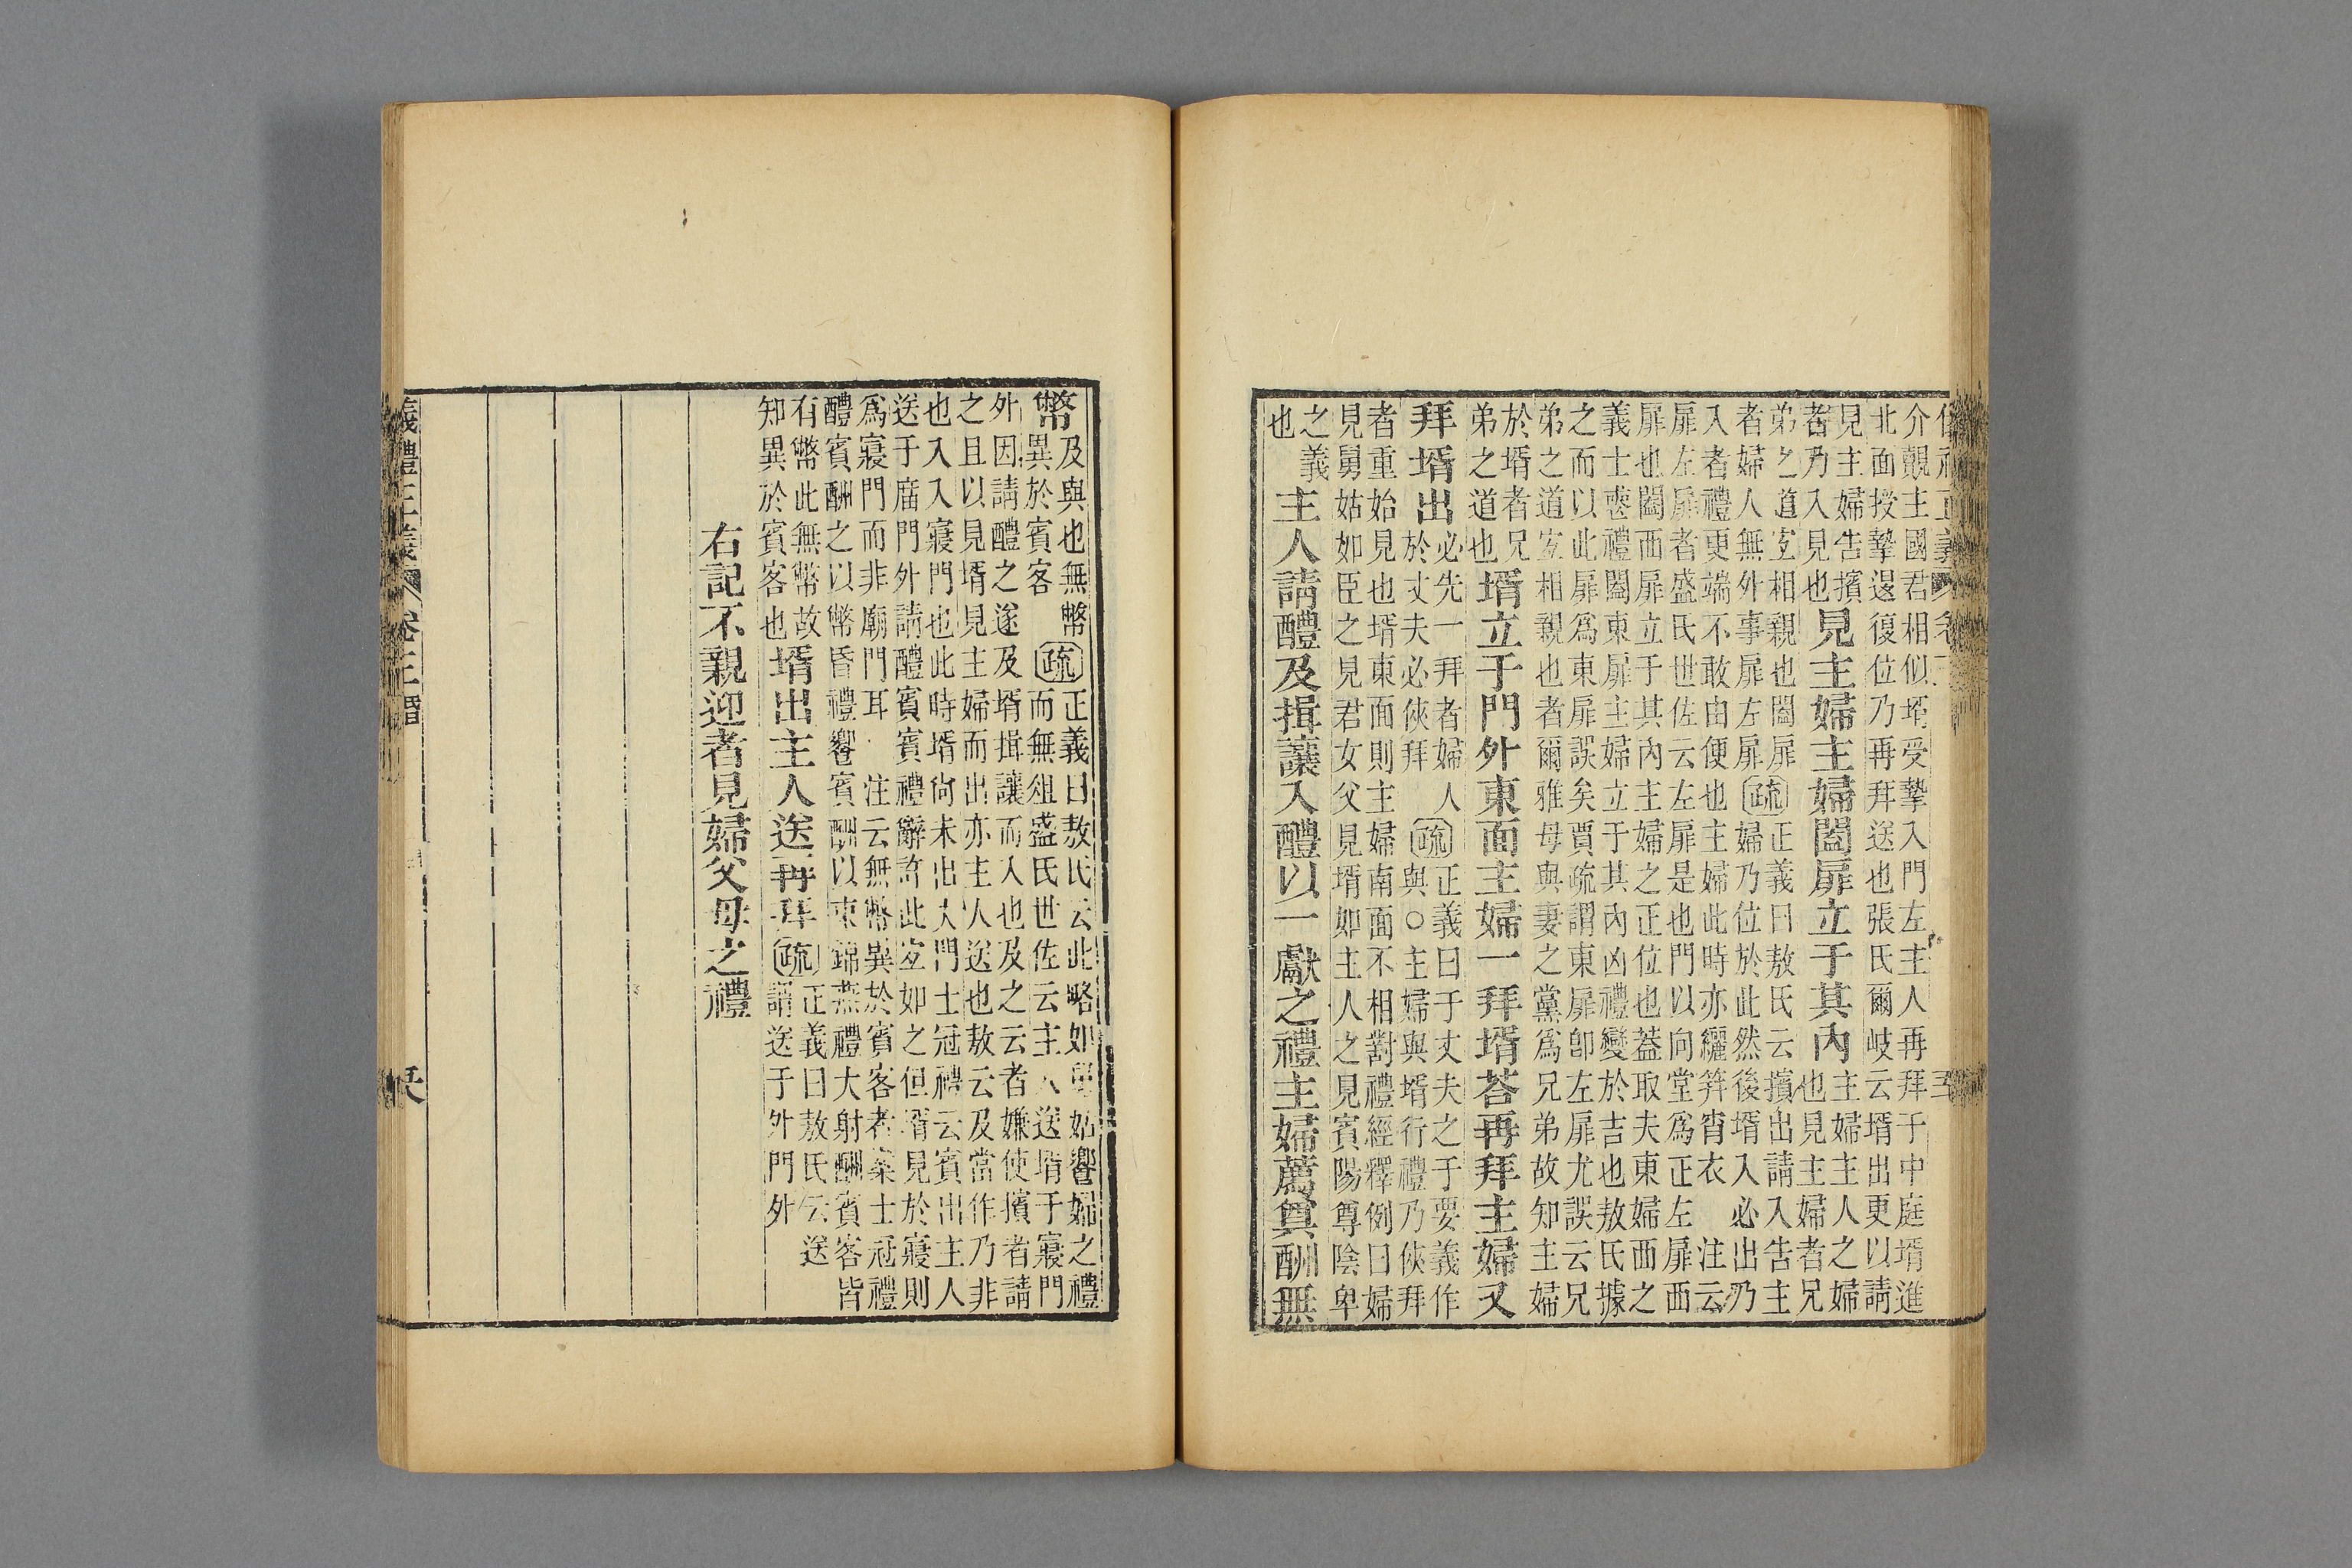 介覿主國君相似壻受摯入門左主人再拜于中庭壻進
北面授摯退復位乃再拜送也張氏爾岐云壻出更以請
見主婦吿擯
者乃入見也
見主婦主婦闔扉立于其內
主婦主人之婦
也見主婦者兄
弟之道宐相親也闔扉
者婦人無外事扉左扉
疏
正義曰敖氏云擯出請入吿主
婦乃位於此然後壻入必出乃
入者禮更端不敢由便也主婦此時亦纚笄宵衣 注云
扉左扉者盛氏世佐云左扉是也門以向堂爲正左扉西
扉也闔西扉立于其內主婦之正位也葢取夫東婦西之
義士喪禮闔東扉主婦立于其內凶禮變於吉也敖氏據
之而以此扉爲東扉誤矣賈疏謂東扉卽左扉尤誤云兄
弟之道宐相親也者爾雅母與妻之黨爲兄弟故知主婦
於壻者兄
弟之道也
壻立于門外東面主婦一拜壻荅再拜主婦又
拜壻出
必先一拜者婦人
於丈夫必俠拜
疏
正義曰于丈夫之于要義作
與○主婦與壻行禮乃俠拜
者重始見也壻東面則主婦南面不相對禮經釋例曰婦
見舅姑如臣之見君女父見壻如主人之見賓陽尊陰卑
之義
也
主人請醴及揖讓入醴以一獻之禮主婦薦奠酬無
幣
及與也無幣
異於賓客
疏
正義曰敖氏云此略如舅姑饗婦之禮
而無俎盛氏世佐云主人送壻于寢門
外因請醴之遂及壻揖讓而入也及之云者嫌使擯者請
之且以見壻見主婦而出亦主人送也敖云及當作乃非
也入入寢門也此時壻尙未出大門士冠禮云賓出主人
送于廟門外請醴賓賓禮辭許此宐如之但壻見於寢則
爲寢門而非廟門耳 注云無幣異於賓客者案士冠禮
醴賓酬之以幣昏禮饗賓酬以束錦燕禮大射酬賓客皆
有幣此無幣故
知異於賓客也
壻出主人送再拜
疏
正義曰敖氏云送
謂送于外門外
右記不親迎者見婦父母之禮